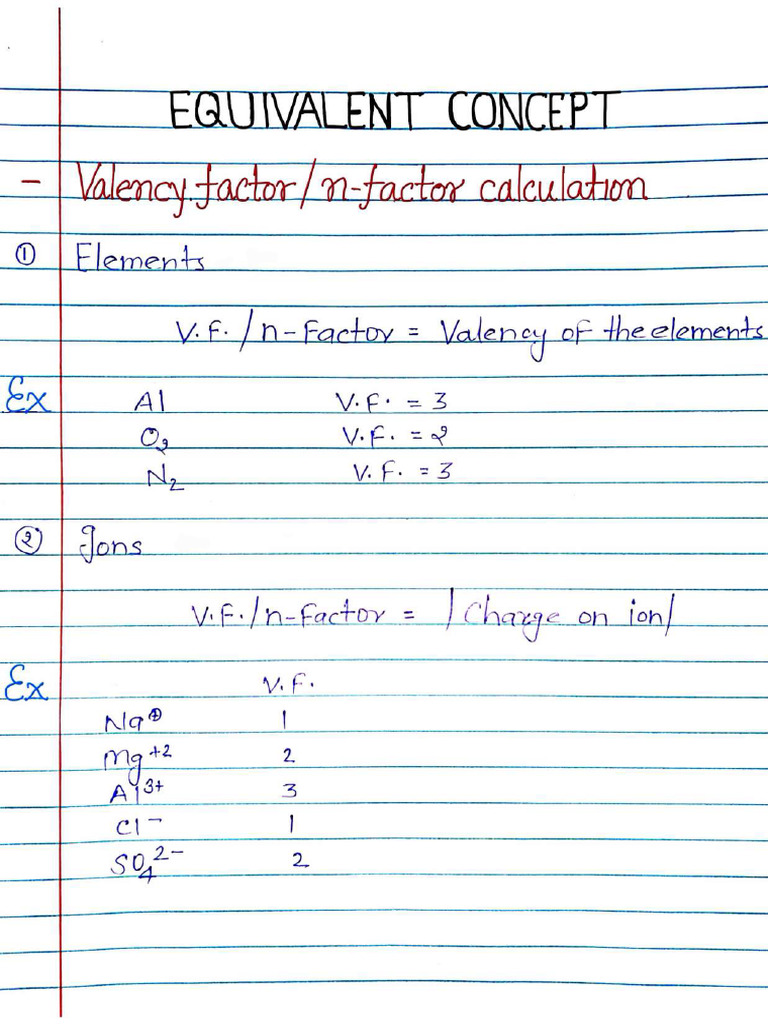 EQUIVALENT CONCEPT
- Valency factor/n-factor calculation
① Elements
V.F./n-Factor = Valency of the elements
Ex Al V.F. = 3
O₂ V.F. = 2
N₂ V.F. = 3
② Ions
V.F./n-Factor = |Charge on ion|
Ex V.F.
Na⊕ 1
Mg⁺² 2
Al³⁺ 3
Cl⁻ 1
SO₄²⁻ 2